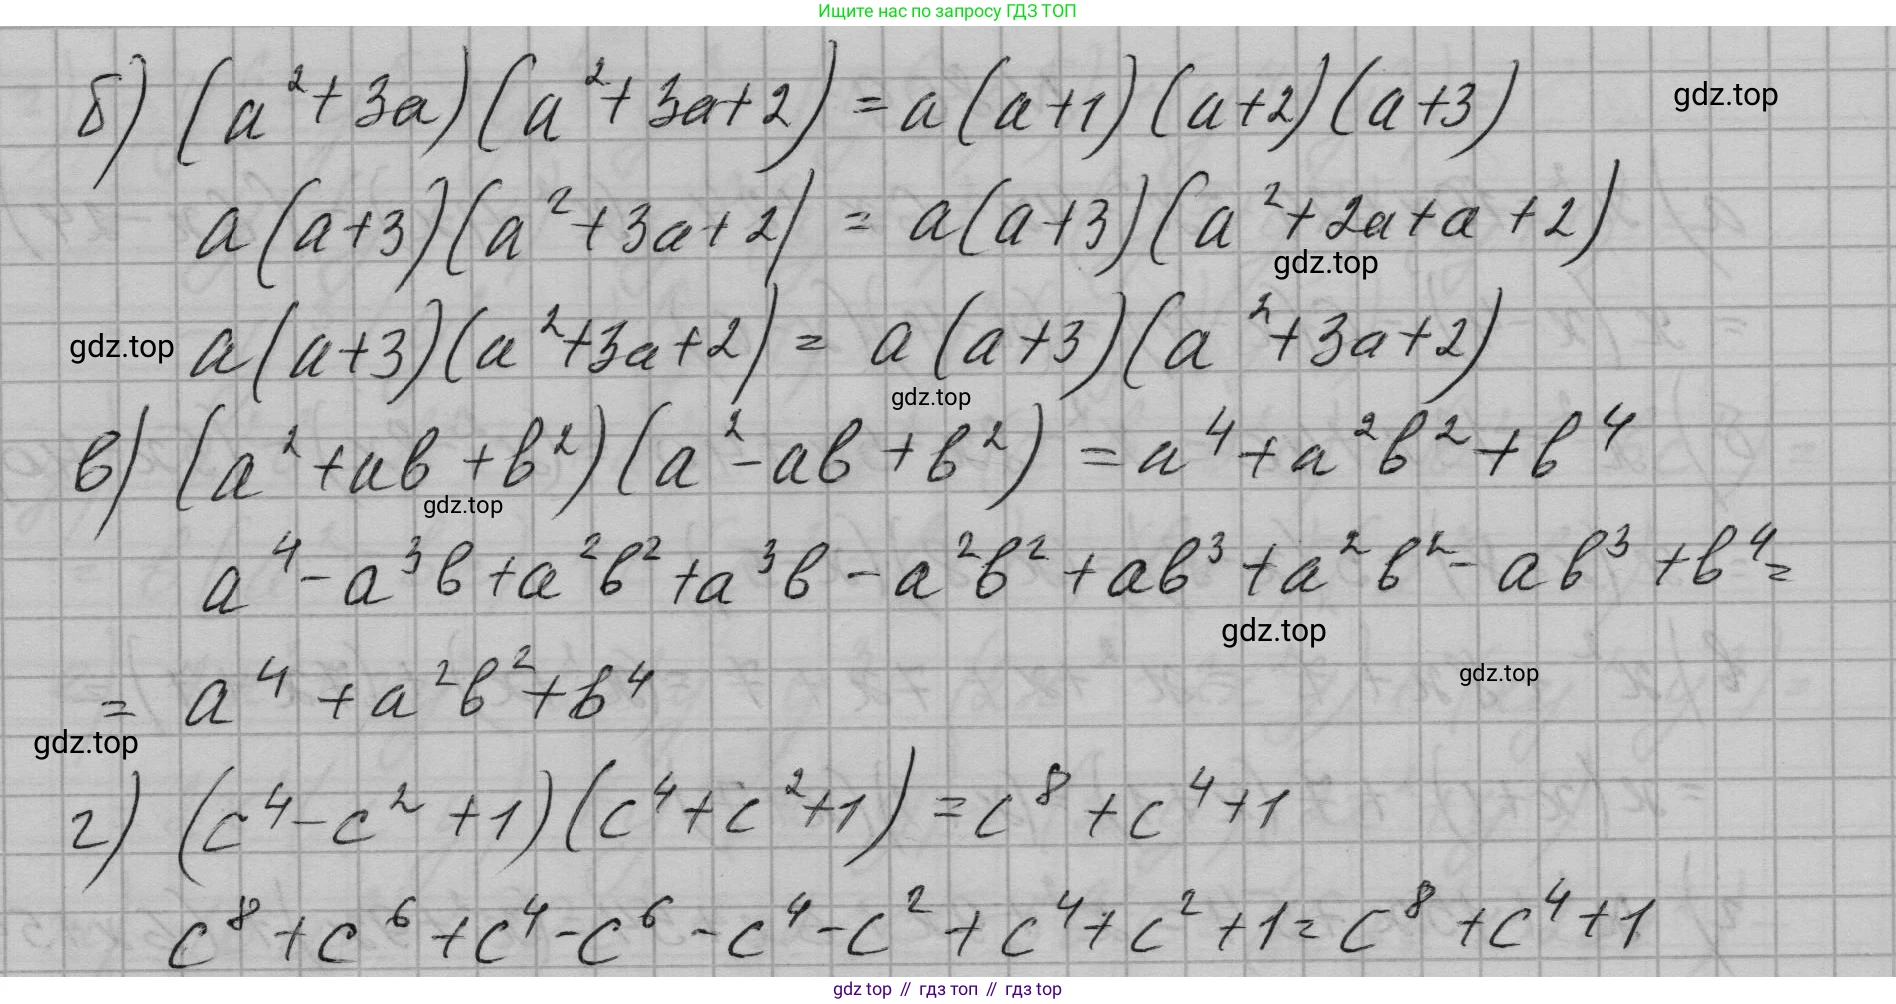 Ищите нас по запросу ГДЗ ТОП
б) (a² + 3a)(a² + 3a + 2) = a(a+1)(a+2)(a+3)
gdz.top
a(a+3)(a² + 3a + 2) = a(a+3)(a² + 2a + a + 2)
gdz.top
gdz.top
a(a+3)(a² + 3a + 2) = a(a+3)(a² + 3a + 2)
gdz.top
в) (a² + ab + b²)(a² - ab + b²) = a⁴ + a²b² + b⁴
gdz.top
a⁴ - a³b + a²b² + a³b - a²b² + ab³ + a²b² - ab³ + b⁴ =
gdz.top
gdz.top
= a⁴ + a²b² + b⁴
gdz.top
г) (c⁴ - c² + 1)(c⁴ + c² + 1) = c⁸ + c⁴ + 1
c⁸ + c⁶ + c⁴ - c⁶ - c⁴ - c² + c⁴ + c² + 1 = c⁸ + c⁴ + 1
gdz top // гдз топ // гдз top